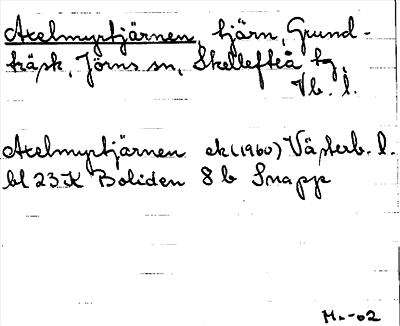 Axelmyrtjärnen, tjärn, Grund-
träsk, Jörns sn, Skellefteå tg,
Vb. l.
Axelmyrtjärnen ek (1960) Västerb. l.
bl 23 K Boliden 8 b Snapp